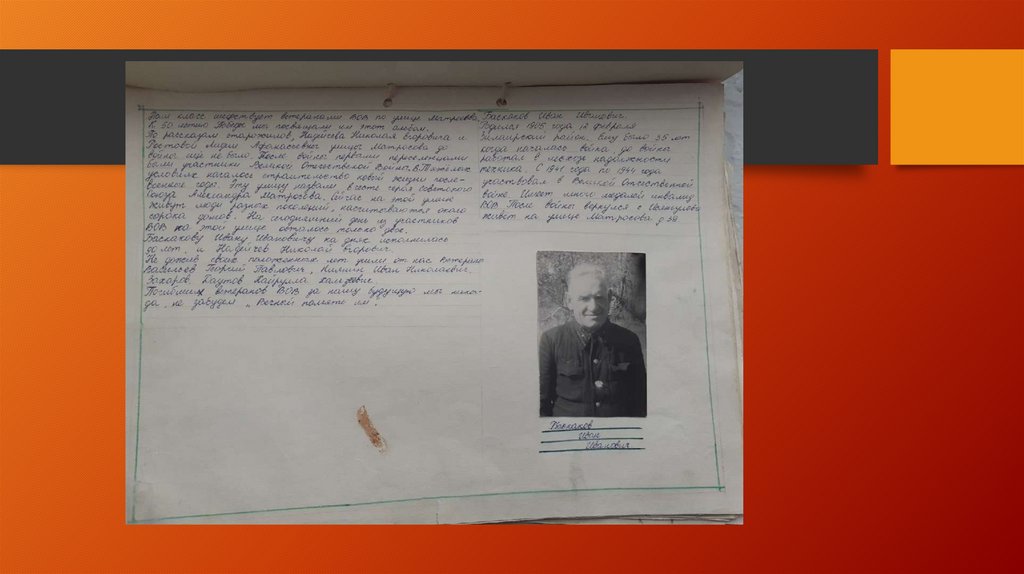 Наш класс шефствует ветеранами ВОВ по улице Матросова,
К 50 летию Победе мы посвящали им этот альбом.
По рассказам старожилов, Надейчева Николая Егоровича и
Ростовой Лидии Афанасьевны улицы Матросова до
война ещё не было. После войны первыми переселенцами
были участники Великой Отечественной Война. В тяжёлых
условиях началось строительство новой жизни после-
военные годы. Эту улицу назвали в честь героя Советского
Союза Александра Матросова. Сейчас на этой улице
живут люди разных поколений, насчитываются около
сорока домов. На сегодняшний день из участников
ВОВ на этой улице осталось только двое.
Баскакову Ивану Ивановичу на днях исполнилось
90 лет, и Надейчев Николай Егорович.
Не дожив своих положенных лет ушли от нас ветераны
Васильев Георгий Павлович, Иван Николаевич,
Захаров, Даутов Хайрулла
Погибших ветеранов ВОВ за нашу будущую мы никог-
да, не забудем "Вечная память им".
Баскаков Иван Иванович.
Родился 1905 года 12 февраля
район. Ему было 35 лет
когда началась война. До война
работал в лесхозе надолжности
техника. С 1941 года по 1944 года
участвовал в Великой Отечественной
войне. Имеет много медалей инвалид
ВОВ. После войны вернулся с
живёт на улице Матросова д 39.
Баскаков
Иван
Иванович